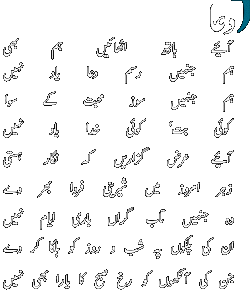 دعا
آئیے ہاتھ اٹھائیں ہم بھی
ہم جنہیں رسم دعا یاد نہیں
ہم جنہیں سوز محبت کے سوا
کوئی بت کوئی خدا یاد نہیں
آئیے عرض گزاریں کہ نگار ہستی
زہر امروز میں شیرینی فردا بھر دے
وہ جنہیں تاب گراں باری ایام نہیں
ان کی پلکوں پہ شب و روز کو ہلکا کر دے
جن کی آنکھوں کو رخ صبح کا یارا بھی نہیں